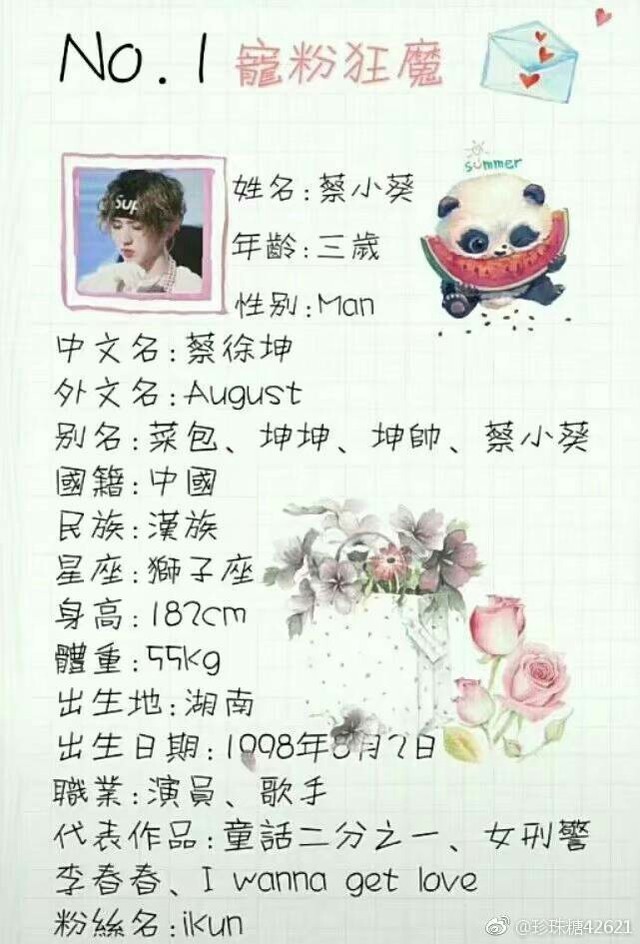 No.1 寵粉狂魔
Sup
summer
姓名:蔡小葵
年齡:三歲
性别:Man
中文名:蔡徐坤
外文名:August
别名:菜包、坤坤、坤帥、蔡小葵
國籍:中國
民族:漢族
星座:獅子座
身高:182cm
體重:55kg
出生地:湖南
出生日期:1998年8月2日
職業:演員、歌手
代表作品:童話二分之一、女刑警
李春春、I wanna get love
粉絲名:ikun
@珍珠糖42621